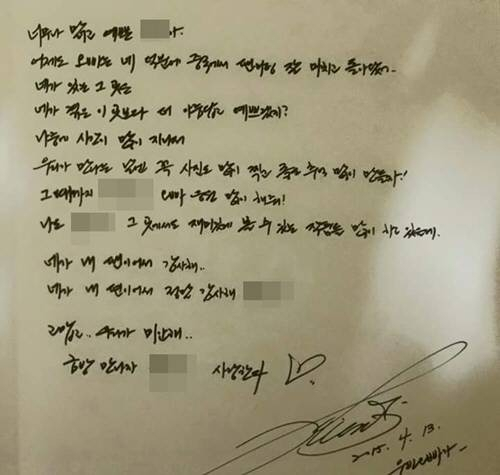 너무나 맑고 예쁜 아.
어제도 오빠는 네 덕분에 중국에서 팬미팅 잘 마치고 돌아왔어..
네가 있는 그 곳은
네가 걸은 이 곳보다 더 아름답고 예쁘겠지?
나중에 시간이 많이 지나서
우리가 만나는 날엔 꼭 사진도 많이 찍고 좋은 추억 많이 만들자!
그때까지 오빠 응원 많이 해줘!
나도 그 곳에서도 재미있게 볼 수 있는 작품들 많이 하고 있을게.
네가 내 팬이어서 감사해..
네가 내 팬이어서 정말 감사해
고맙고.. 미안해..
금방 만나자 사랑한다 ♡.
2015. 4. 13.